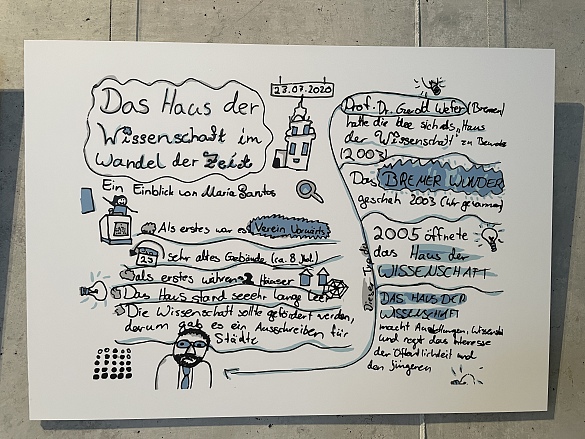 23.07.2020
Das Haus der
Wissenschaft im
Wandel der Zeit
Ein Einblick von Maria Santos
Als erstes war es Verein Vorwärts
sehr altes Gebäude, (ca. 8 Jhd.)
als erstes währen 2 Häuser
Das Haus stand seeehr lange leer
Die Wissenschaft sollte gefördert werden,
darum gab es ein Ausschreiben für
Städte
Prof. Dr. Gerold Wefer (Bremen)
hatte die Idee sich als "Haus
der Wissenschaft" zu
(2003)
Das BREMER WUNDER
geschah 2003 (Wir gewannen)
2005 öffnete
das Haus der
WISSENSCHAFT
DAS HAUS DER
WISSENSCHAFT
macht Austellungen,
und regt das Interesse
der Öffentlichkeit und
den jüngeren